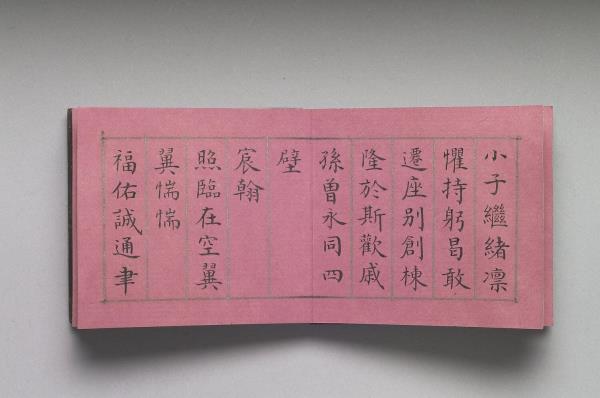 小子繼緒凛
懼持躬曷敢
遷座别創棟
隆於斯歡戚
孫曾永同四
壁
宸翰
照臨在空翼
翼惴惴
福佑誠通聿